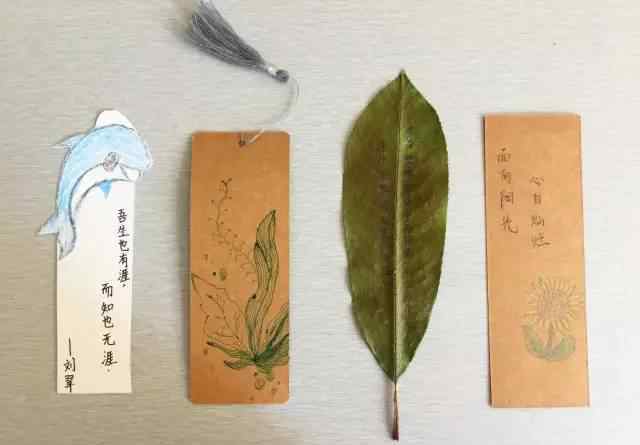 吾生也有涯，
而知也无涯。
—刘翠
面向阳光
心自灿烂